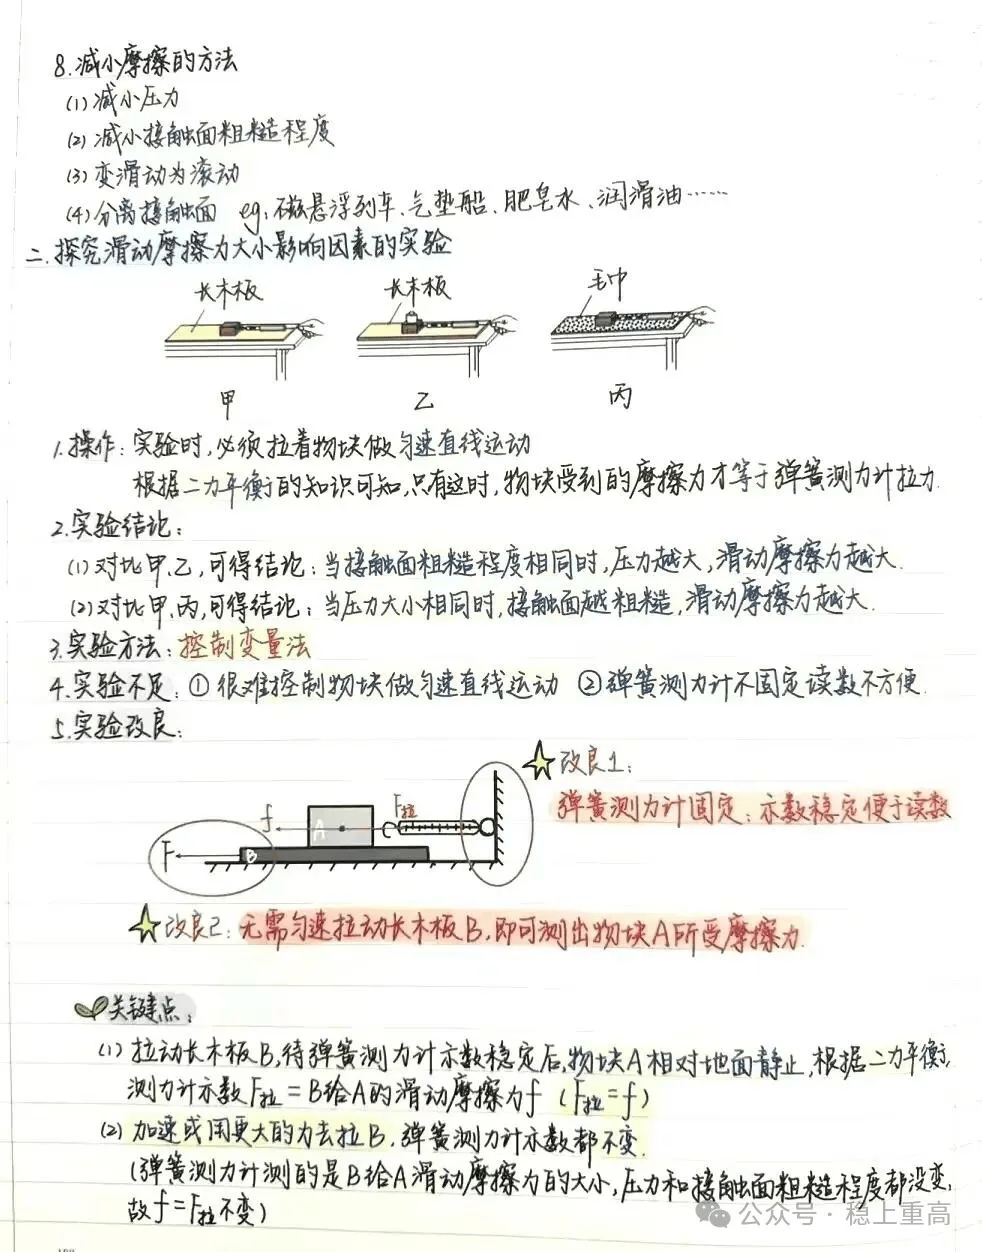 8.减小摩擦的方法
(1)减小压力
(2)减小接触面粗糙程度
(3)变滑动为滚动
(4)分离接触面 eg:磁悬浮列车、气垫船、肥皂水、润滑油……
二.探究滑动摩擦力大小影响因素的实验
长木板 长木板 毛巾
甲 乙 丙
1.操作:实验时,必须拉着物块做匀速直线运动
根据二力平衡的知识可知,只有这时,物块受到的摩擦力才等于弹簧测力计拉力.
2.实验结论:
(1)对比甲、乙,可得结论:当接触面粗糙程度相同时,压力越大,滑动摩擦力越大.
(2)对比甲、丙,可得结论:当压力大小相同时,接触面越粗糙,滑动摩擦力越大.
3.实验方法:控制变量法
4.实验不足:①很难控制物块做匀速直线运动 ②弹簧测力计不固定读数不方便.
5.实验改良:
改良1:
弹簧测力计固定:示数稳定便于读数
f A F拉
F B
改良2:无需匀速拉动长木板B,即可测出物块A所受摩擦力.
关键点:
(1)拉动长木板B,待弹簧测力计示数稳定后,物块A相对地面静止,根据二力平衡,
测力计示数F拉=B给A的滑动摩擦为f(F拉=f)
(2)加速或用更大的力去拉B.弹簧测力计示数都不变.
(弹簧测力计测的是B给A滑动摩擦力的大小,压力和接触面粗糙程度都没变,
故f=F拉不变)
公众号·稳上重高